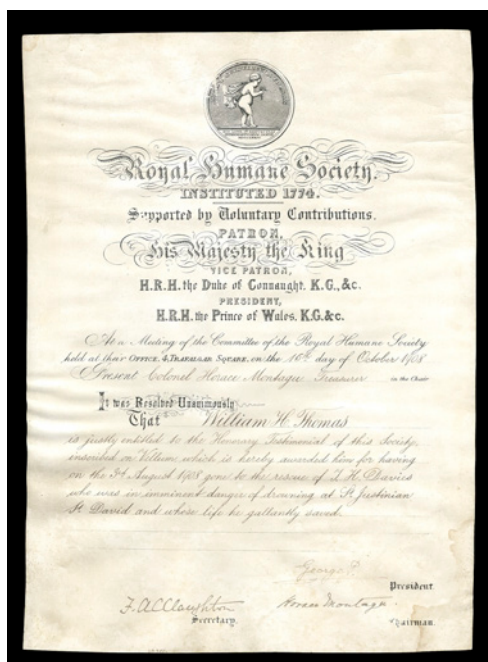 Royal Humane Society.
INSTITUTED 1774.
Supported by Voluntary Contributions.
PATRON,
His Majesty the King
VICE PATRON,
H.R.H. the Duke of Connaught. K.G., &c.
PRESIDENT,
H.R.H. the Prince of Wales. K.G. &c.
At a Meeting of the Committee of the Royal Humane Society
held at their OFFICE, 4, TRAFALGAR SQUARE, on the 16th day of October 1908
Present Colonel Horace Montagu Treasurer in the Chair
It was Resolved Unanimously
That William H. Thomas
is justly entitled to the Honorary Testimonial of this Society,
inscribed on Vellum, which is hereby awarded him for having
on the 3rd August 1908 gone to the rescue of J. H. Davies
who was in imminent danger of drowning at St Justinian
St David and whose life he gallantly saved.
George P.
President.
F. A. C. Claughton
Secretary.
Horace Montagu.
Chairman.